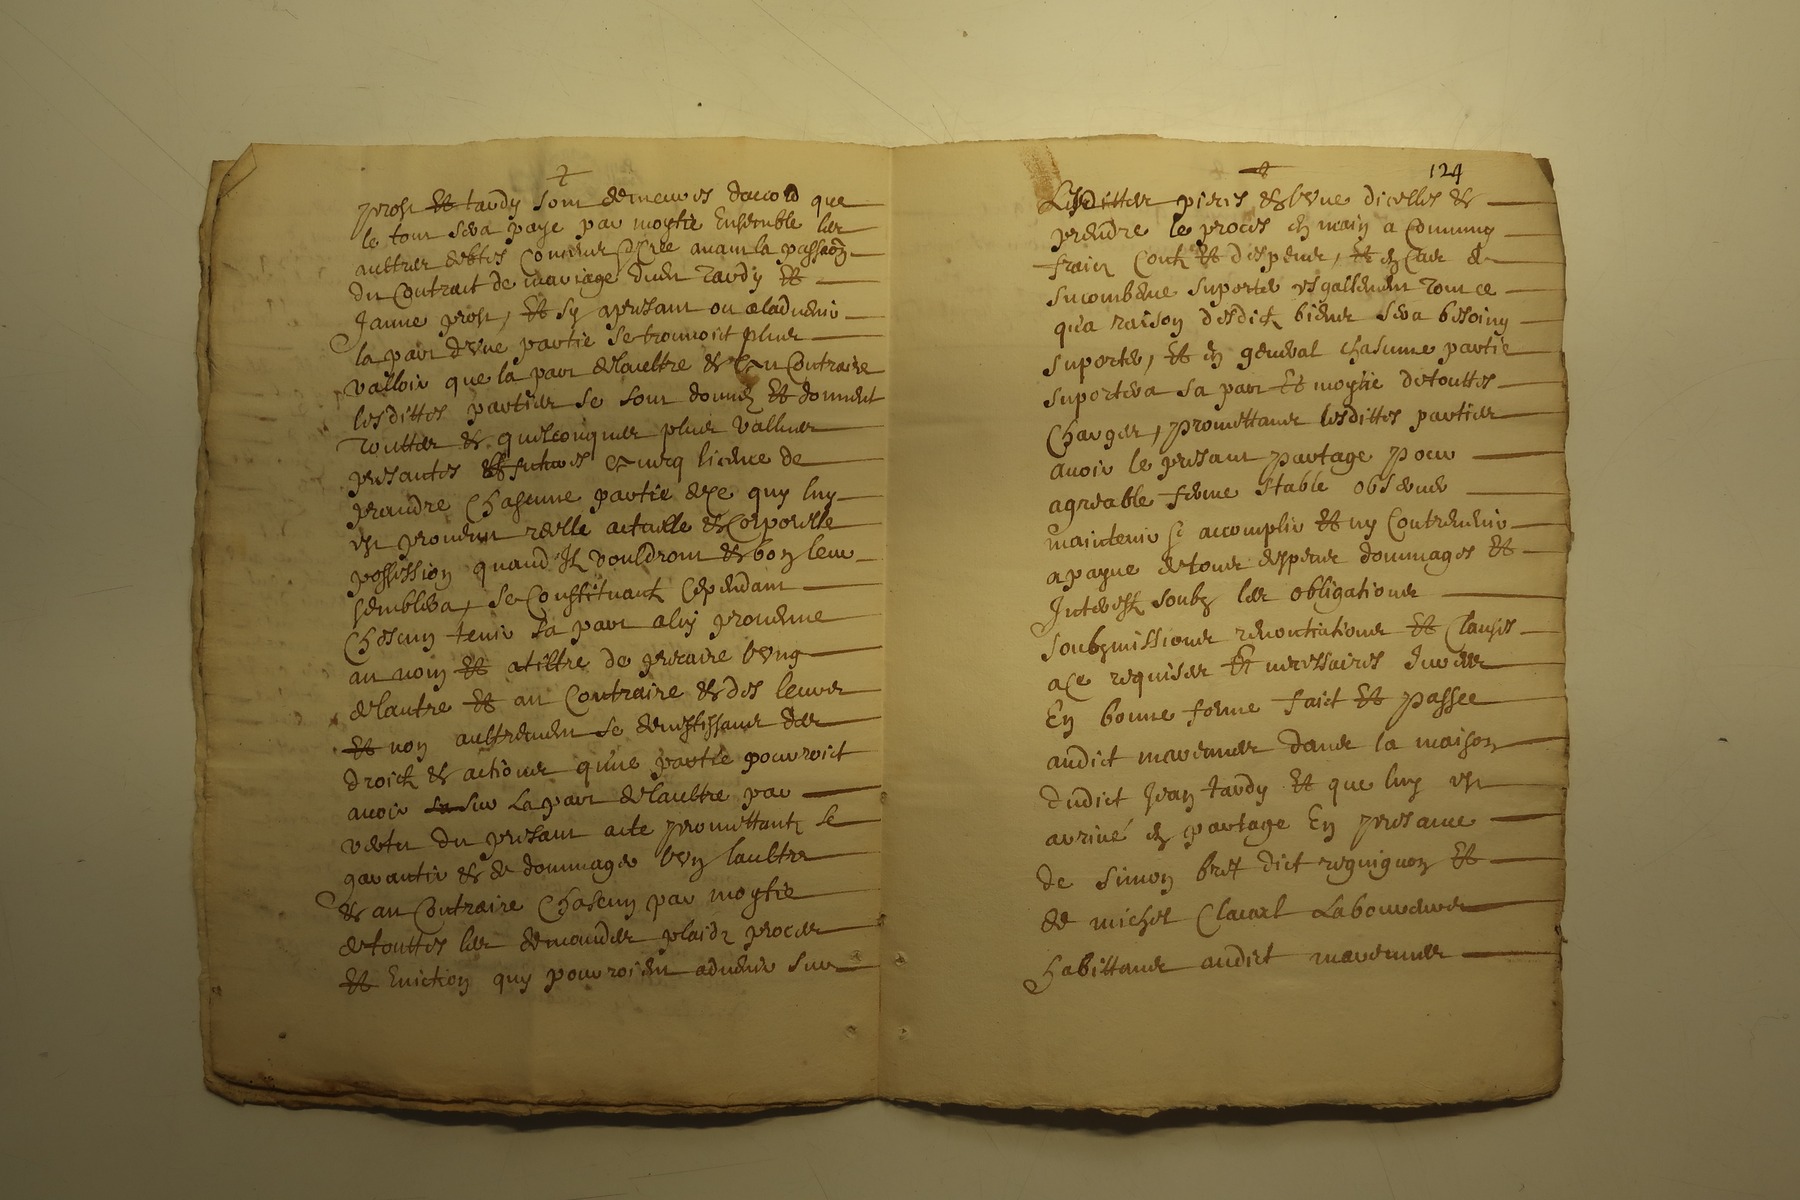 prost et tardy sont demeures daccord que
le tout sera paye par moytie Ensemble les
aultres debtes avant la passaon
du Contract de mariage dudit Tardy et
Janne prost, et sy apresant ou aladvenir
la part dune partie se trouvoit plus
valloir que la part delaultre et au Contraire
lesdittes parties se sont donnez et donnent
touttes et quelconques plus vallues
presantes et futures avecq licence de
prandre Chascune partie de ce quy luy
est provenu reelle actuelle et Corporelle
possession quand Ilz vouldront et bon leur
semblera, se Constituantz Cependant
Chascung tenir sa part a luy provenue
au nom et a tiltre de precaire lung
delautre et au Contraire et des leurs
et non aultrement se devestissant des
droictz et actions qune partie pourroit
avoir sur La part delaultre par
vertu du presant acte promettantz se
garantir et de dommages lung laultre
et au Contraire Chascung par moytie
de touttes les demandes plaidz proces
et Eviction quy pourroient advenir sur
124
Lesdittes pieces et lune dicelles et
prendre le proces en main a Commung
fraiz Coutz et despens, et en Cas de
sucombence suporter esgallement tout ce
qua raison desdictz biens sera besoing
suporter, et en general chascune partie
suportera sa part et moytie de touttes
Charges, promettans lesdittes parties
avoir le presant partage pour
agreable ferme stable observer
maintenir accomplir et ny Contrevenir
a payne de tous despens dommages et
Interestz soubz les obligations
soubzmissions renontiations et Clauses
a ce requises et necessaires Jurees
En bonne forme faict et passee
audict dans la maison
dudict Jean tardy et que luy est
arrivé en partage En presance
de simon dict et
de michel Laboureurs
habittans audict